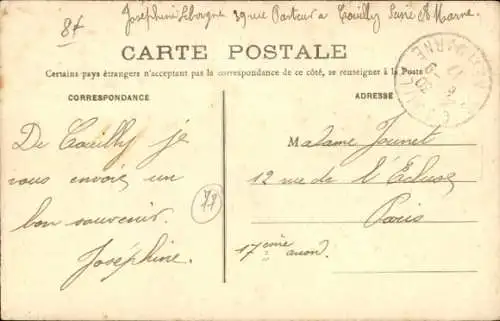 8f
Joséphine Leborgne 39 rue Pasteur à Couilly Seine & Marne.
CARTE POSTALE
Certains pays étrangers n'acceptent pas la correspondance de ce côté, se renseigner à la Poste
CORRESPONDANCE
ADRESSE
De Couilly je
vous envoie un
bon souvenir.
Joséphine.
77
Madame Jounet
12 rue de l'Ecluse
Paris
17ème arrond.